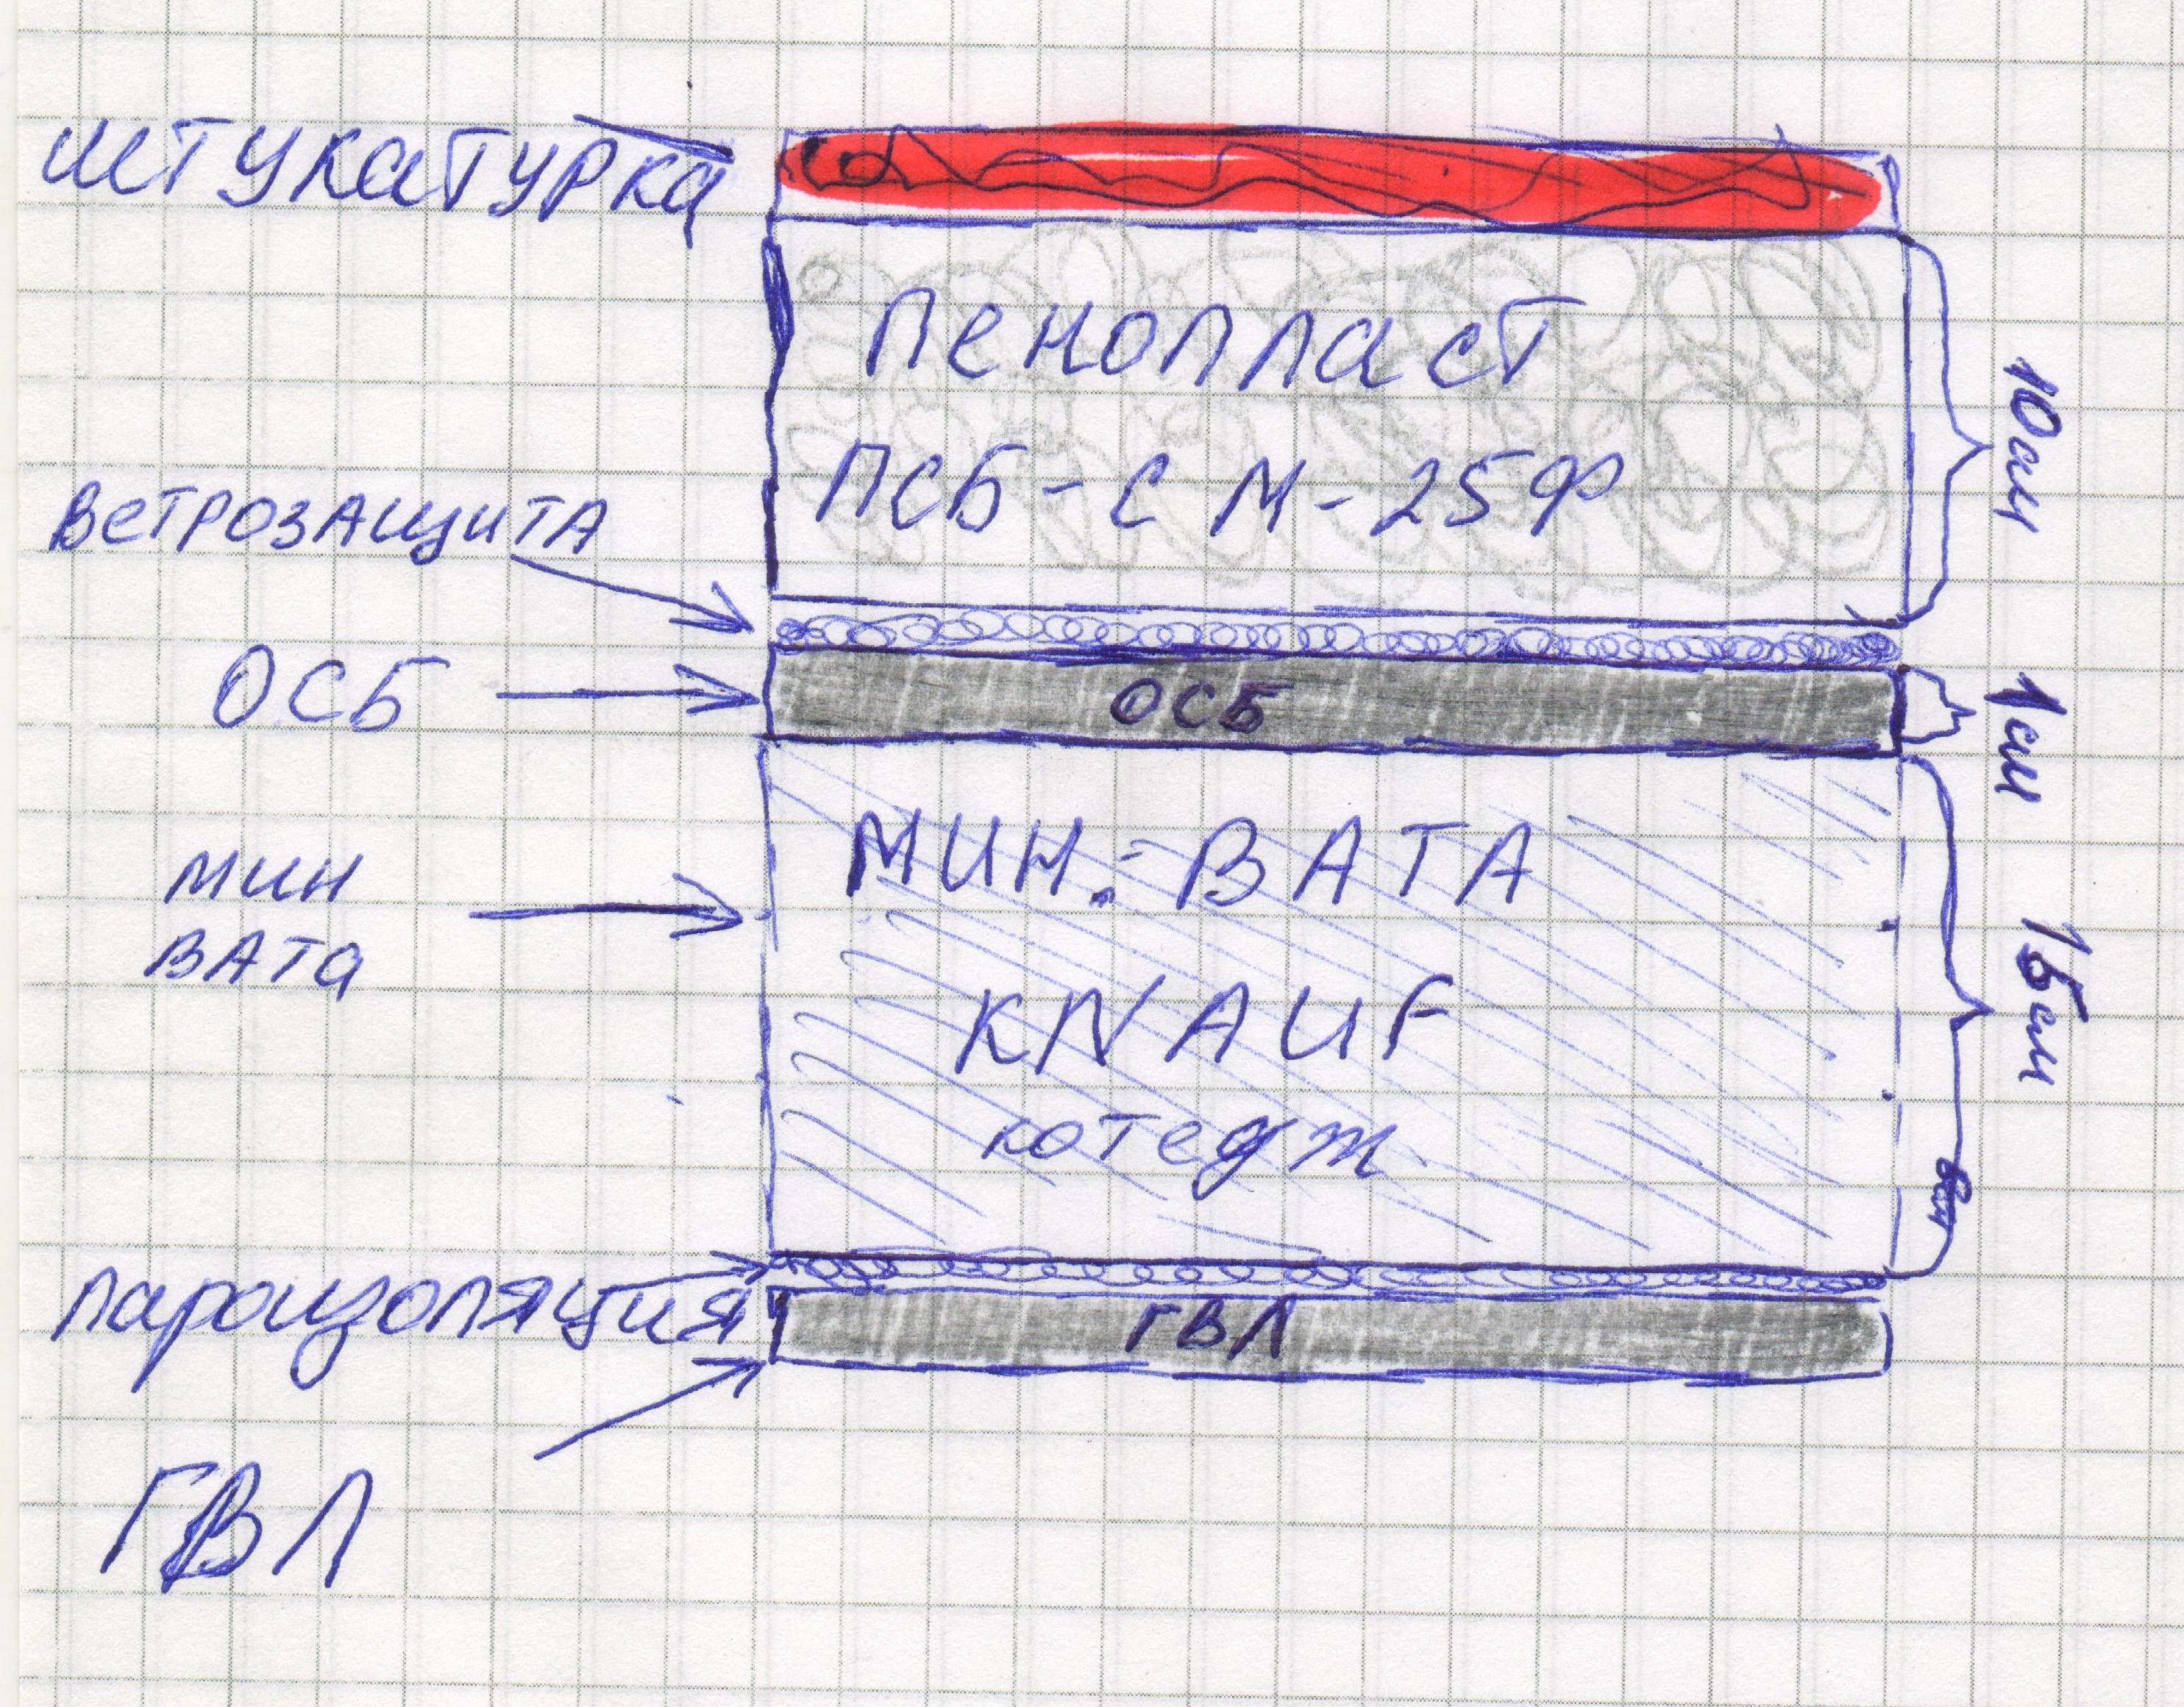 штукатурка
пенопласт
10см
ПСБ-С М-25Ф
ветрозащита
ОСБ
ОСБ
1см
мин
вата
МИН. ВАТА
15см
KNAUF
котедж
пароизоляция
ГВЛ
ГВЛ